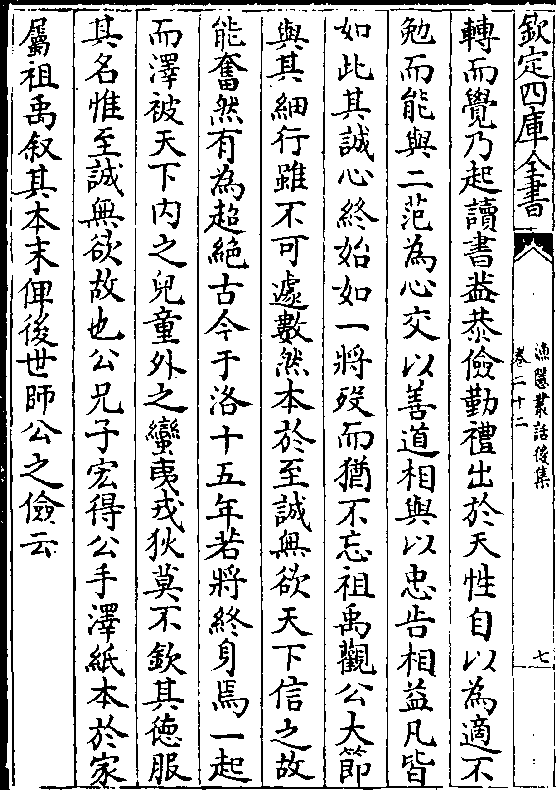 欽定四庫全書
漁隱叢話後集
卷二十二
七
轉而覺乃起讀書葢恭儉勤禮出於天性自以為適不
勉而能與二范為心交以善道相與以忠告相益凡皆
如此其誠心終始如一將歿而猶不忘祖禹觀公大節
與其細行雖不可遽數然本於至誠無欲天下信之故
能奮然有為超絶古今于洛十五年若將終身焉一起
而澤被天下内之兒童外之蠻夷戎狄莫不欽其徳服
其名惟至誠無欲故也公兄子宏得公手澤紙本於家
屬祖禹叙其本末俾後世師公之儉云